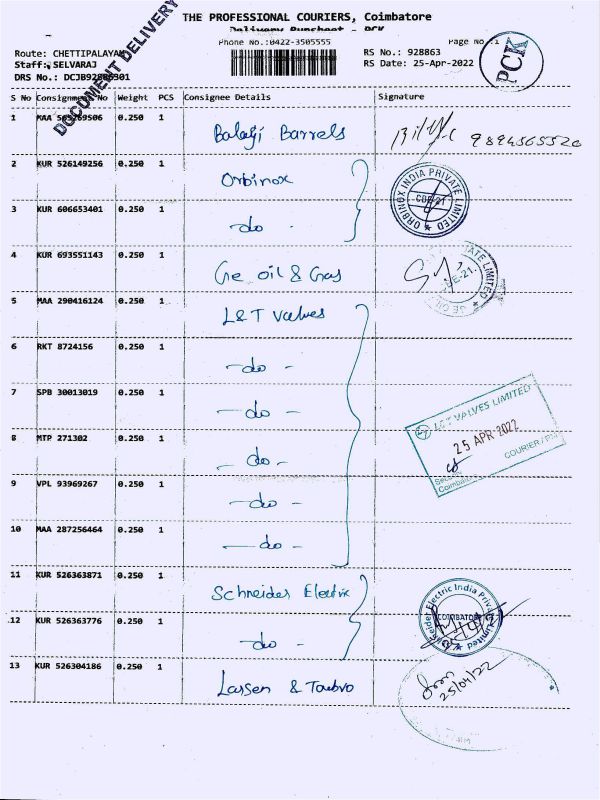 THE PROFESSIONAL COURIERS, Coimbatore
Delivery Runsheet - PCK
Phone No.:0422-3505555 Page No.:1
Route: CHETTIPALAYAM RS No.: 928863
Staff: SELVARAJ RS Date: 25-Apr-2022
DRS No.: DCJB92886301
DOCUMENT DELIVERY
PCK
S No Consignment No Weight PCS Consignee Details Signature
1 MAA 0.250 1 Balaji Barrels 9894565520
2 KUR 526149256 0.250 1 Orbinox
ORBINOX INDIA PRIVATE LIMITED
CBE-21
3 KUR 606653401 0.250 1 - do -
4 KUR 693551143 0.250 1 Ge oil & Gas
5 MAA 290416124 0.250 1 L&T Valves
6 RKT 8724156 0.250 1 - do -
7 SPB 30013019 0.250 1 - do -
8 MTP 271302 0.250 1 - do -
L&T VALVES LIMITED
25 APR 2022
COURIER /
9 VPL 93969267 0.250 1 - do -
10 MAA 287256464 0.250 1 - do -
11 KUR 526363871 0.250 1 Schneider Electric
Schneider Electric India Private Limited
COIMBATORE
12 KUR 526363776 0.250 1 - do -
13 KUR 526304186 0.250 1 Larsen & Toubro
25/04/22